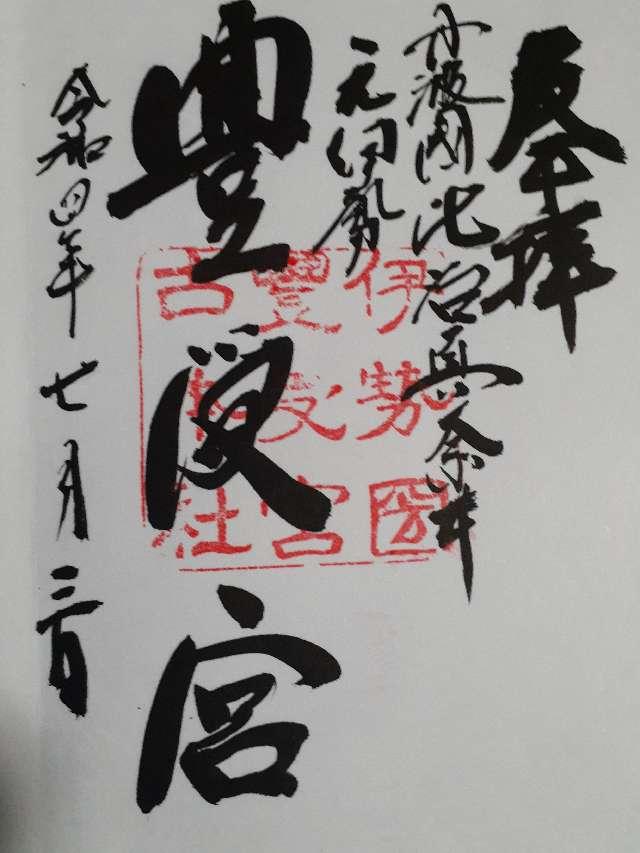 奉拝
丹波國比治真奈井
元伊勢
豊受宮
令和四年七月三日
伊勢圀
豐受宮
古 社